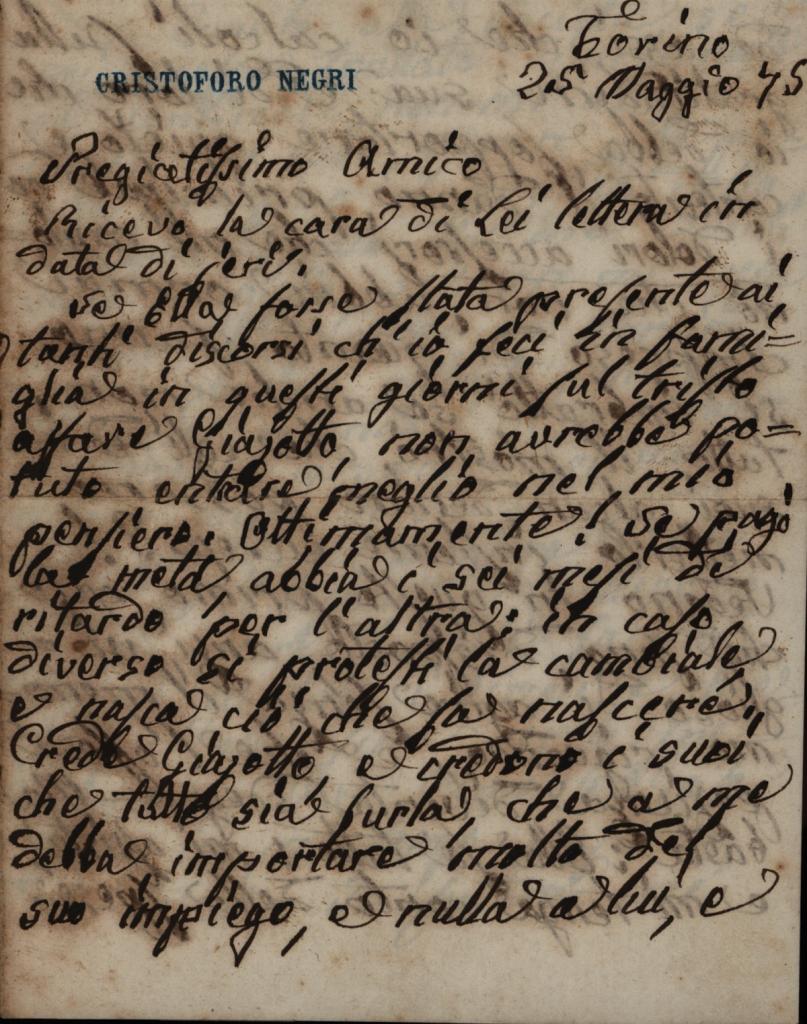 Torino
CRISTOFORO NEGRI
25 Maggio 75
Pregiatissimo Amico
Ricevo la cara di Lei lettera in
data di ieri.
Se Ella fosse stata presente ai
tanti discorsi ch'io feci in fami=
glia in questi giorni sul tristo
affare Giazotto, non avrebbe po=
tuto entrare meglio nel mio
pensiero. Ottimamente! Se pagò
la metà, abbia i sei mesi di
ritardo per l'altra: in caso
diverso si protesti la cambiale
e nasca ciò che sa nascere.
Crede Giazotto e credono i suoi
che tutto sia burla, che a me
debba importare molto del
suo impiego, e nulla a lui, e